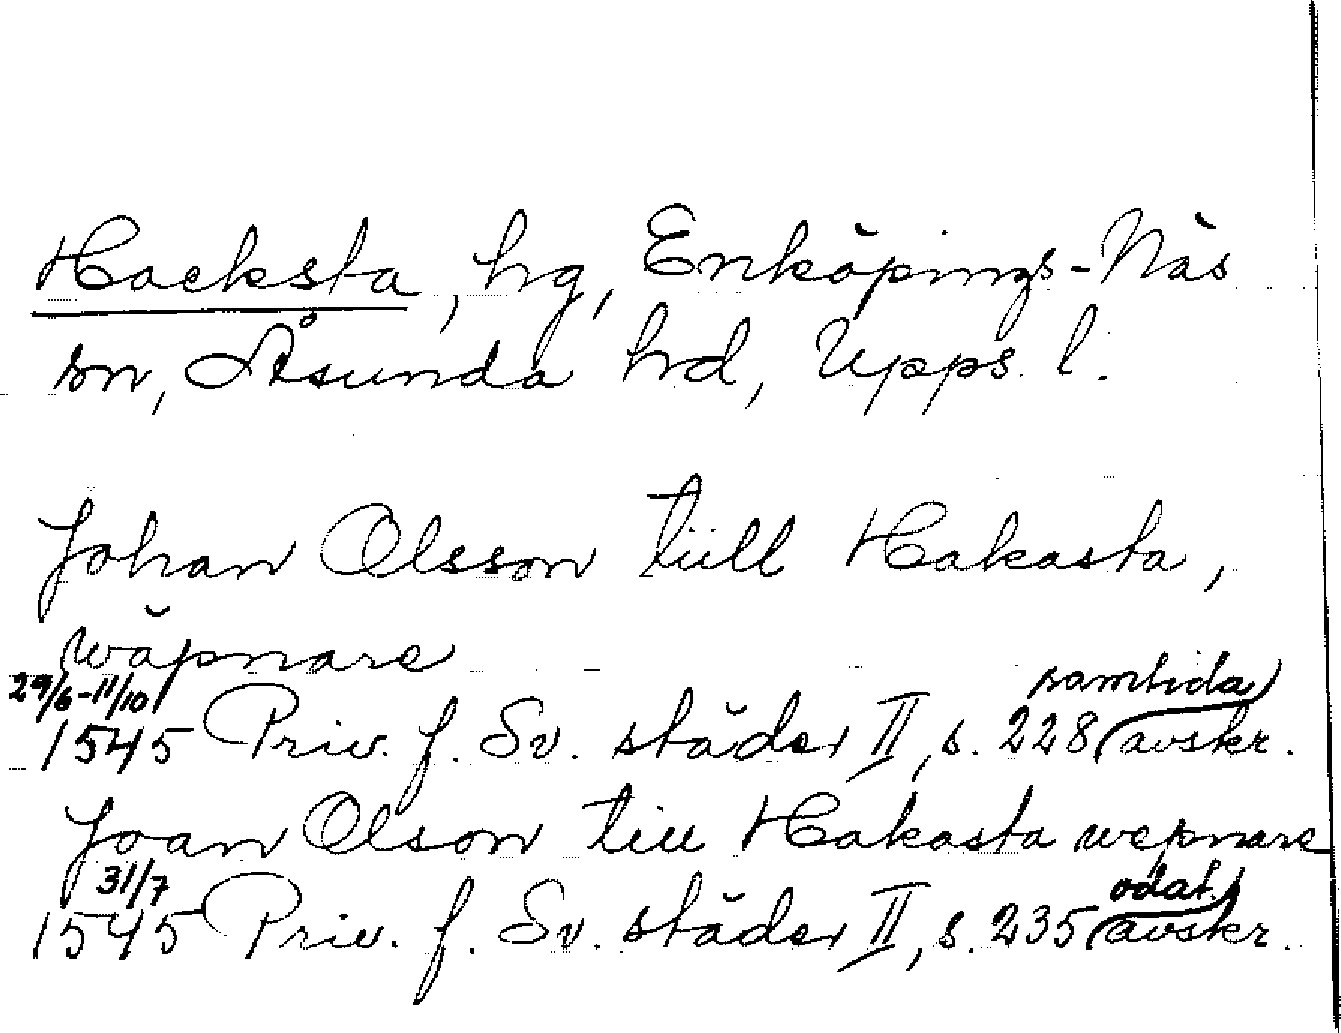 Hacksta, hg, Enköpings-Näs
sn, Åsunda hd, Upps. l.
Johan Olsson tiill Hakasta,
wäpnare
29/6-11/10 samtida
1545 Priv. f. Sv. städer II, s. 228 (avskr.
Joan Olson till Hakasta wepnare
31/7 odat.
1545 Priv. f. Sv. städer II, s. 235 (avskr.